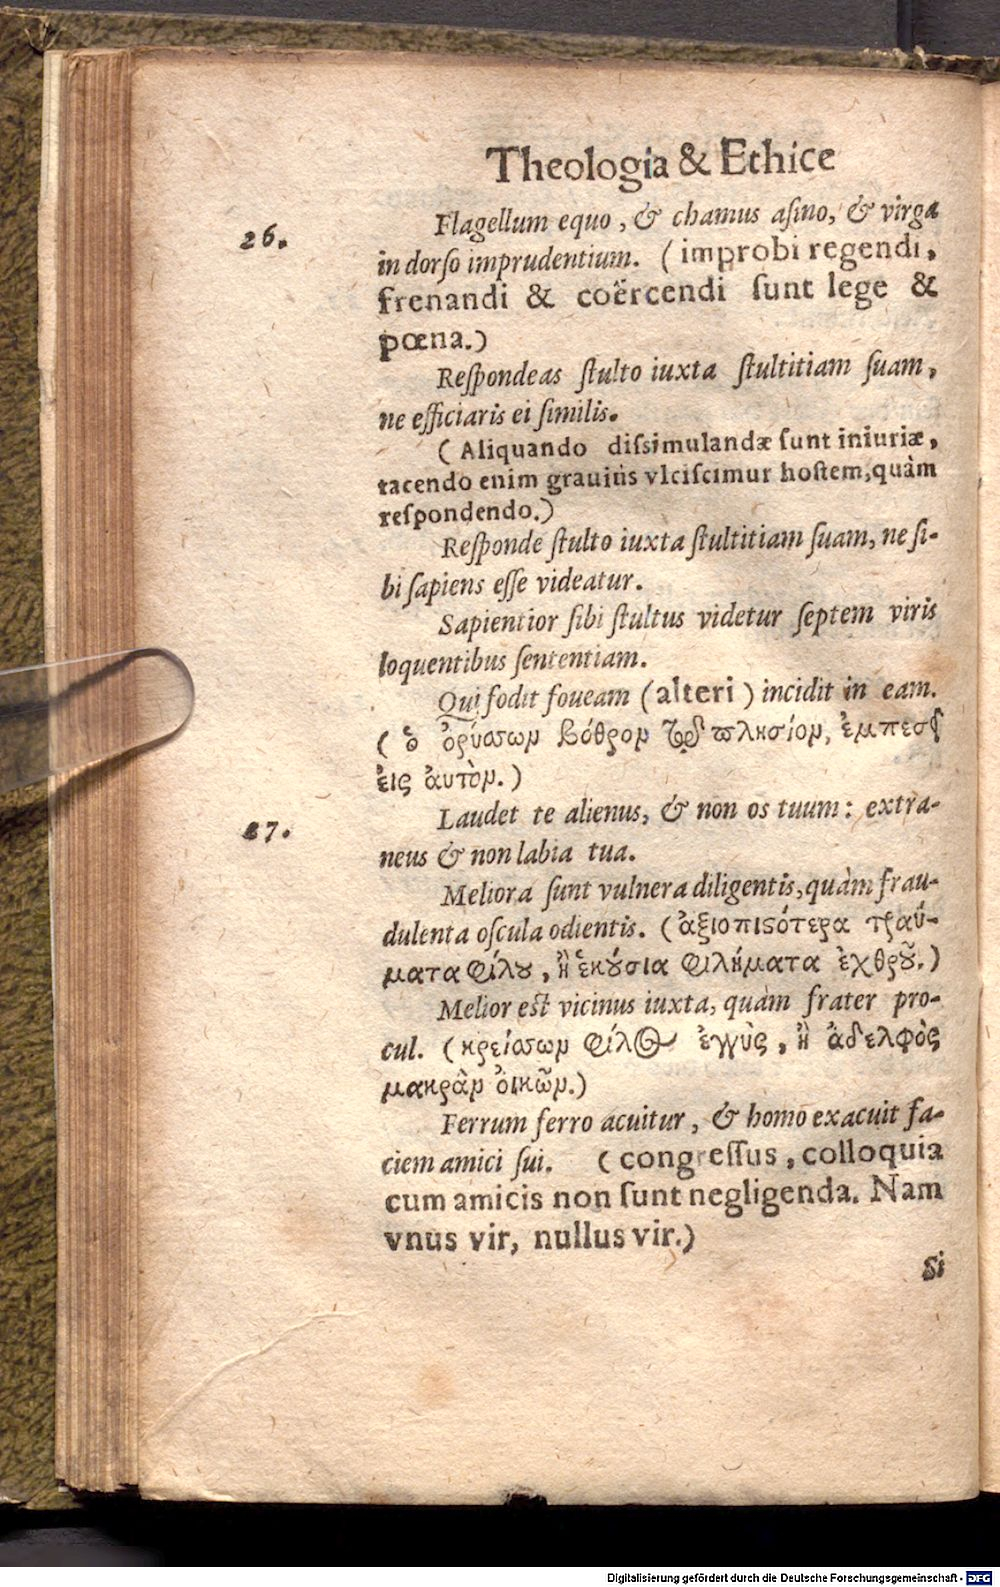 Theologia & Ethice
26.
Flagellum equo, & chamus aſino, & virga
in dorſo imprudentium. (improbi regendi,
frenandi & coërcendi ſunt lege &
pœna.)
Reſpondeas ſtulto iuxta ſtultitiam ſuam,
ne efficiaris ei ſimilis.
(Aliquando diſsimulandæ ſunt iniuriæ,
tacendo enim grauiùs vlciſcimur hoſtem, quàm
reſpondendo.)
Reſponde ſtulto iuxta ſtultitiam ſuam, ne ſi-
bi ſapiens eſſe videatur.
Sapientior ſibi ſtultus videtur ſeptem viris
loquentibus ſententiam.
Qui fodit foueam (alteri) incidit in eam.
(ὁ ὀρύσσων βόθρον τῷ πλησίον, ἐμπεσεῖ
εἰς ἀυτὸν.)
27.
Laudet te alienus, & non os tuum: extra-
neus & non labia tua.
Meliora ſunt vulnera diligentis, quàm frau-
dulenta oſcula odientis. (ἀξιοπιςότερα τραύ-
ματα φίλου, ἢ ἑκούσια φιλήματα ἐχθροῦ.)
Melior est vicinus iuxta, quàm frater pro-
cul. (κρείσσων φίλος ἐγγὺς, ἢ ἀδελφὸς
μακρὰν ὀικῶν.)
Ferrum ferro acuitur, & homo exacuit fa-
ciem amici ſui. (congreſſus, colloquia
cum amicis non ſunt negligenda. Nam
vnus vir, nullus vir.)
Si
Digitalisierung gefördert durch die Deutsche Forschungsgemeinschaft - DFG